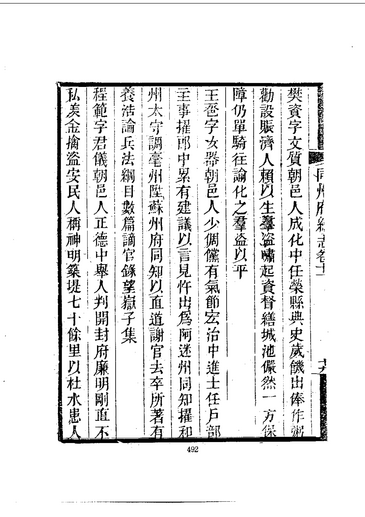 同州府續志卷十二
樊資字文質朝邑人成化中任榮縣典史歲饑出俸作粥
勸設賑濟人賴以生羣盜嘯起資督繕城池儼然一方保
障仍單騎往諭化之羣盜以平
王奎字女器朝邑人少倜儻有氣節宏治中進士任戶部
主事擢郎中累有建議以言見忤出為阿迷州同知擢和
州太守調亳州陞蘇州府同知以直道謝官去卒所著有
養浩論兵法綱目數篇謫官錄望嶽子集
程範字君儀朝邑人正德中舉人判開封府廉明剛直不
私羨金擒盜安民人稱神明築堤七十餘里以杜水患人
492